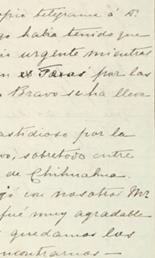 opio telegrama á D.
go habia tenido que
as urgente mientras
en Texas por las
Bravo se ha lleva
astidioso por la
vo, sobretodo entre
de Chihuahua.
gó con nosotros Mr
fué muy agradable
quedamos los
ncontrarnos —